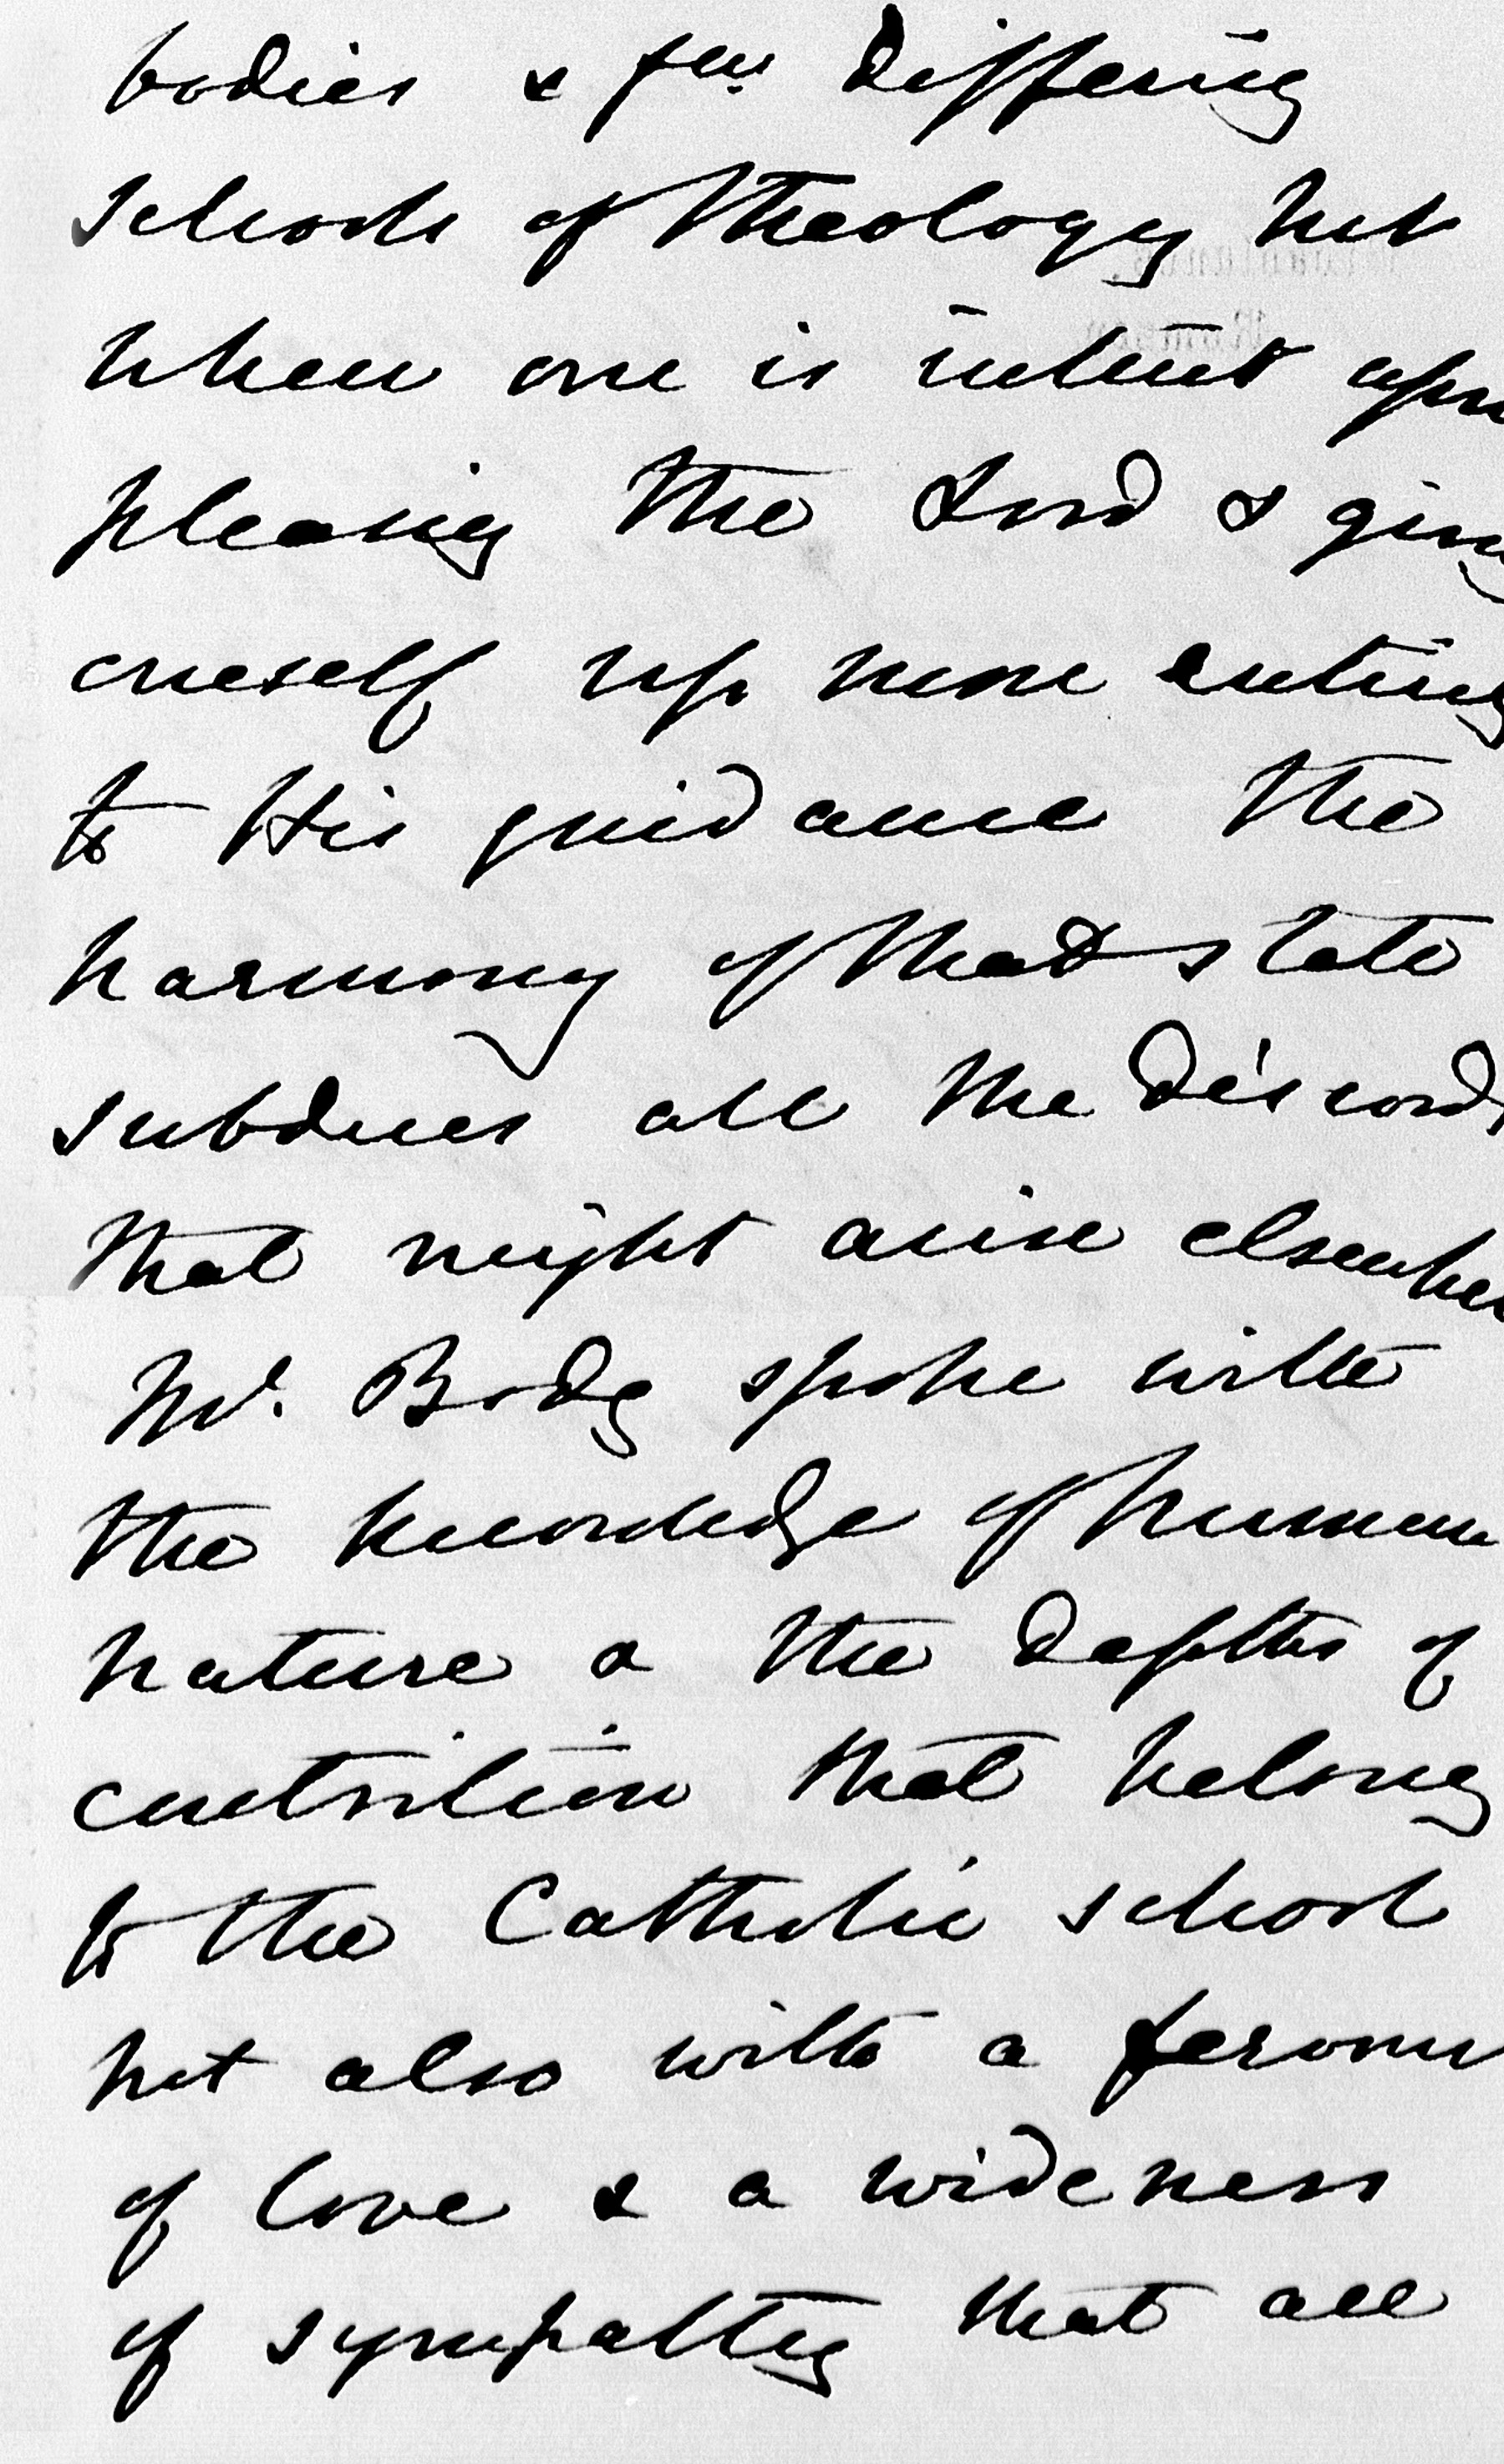 bodies & fm. differing
schools of theology but
when one is intent upon
pleasing the Lord & giving
oneself up more entirely
to His guidance the
harmony of that state
subdues all the discords
that might arise elsewhere
Mr. Body spoke with
the knowledge of human
nature & the depths of
contrition that belong
to the Catholic school
but also with a fervour
of love & a wideness
of sympathy that all